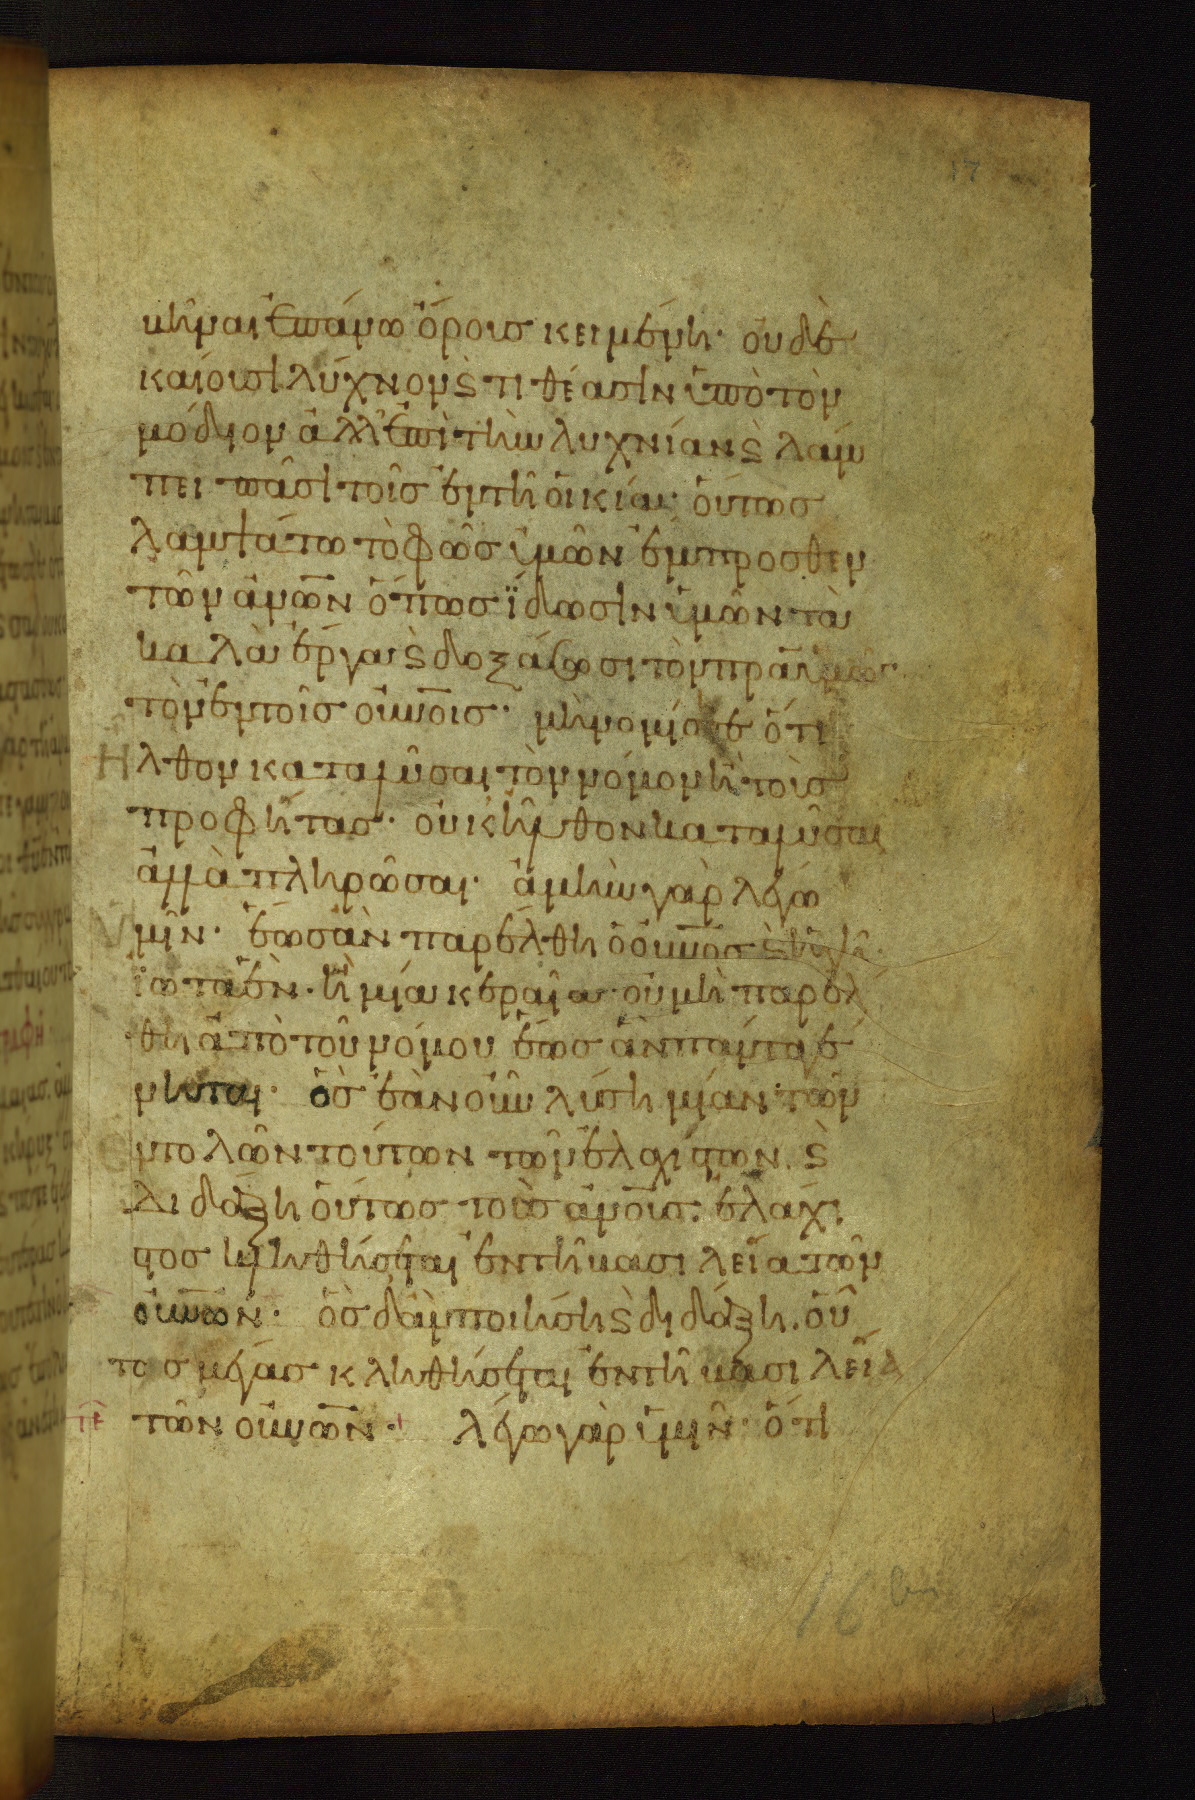 17
κρυβῆναι ἐπάνω ὄρους κειμένη· οὐδὲ
καίουσι λύχνον ϗ τιθέασιν ὑπὸ τὸν
μόδιον ἀλλ' ἐπὶ τὴν λυχνίαν ϗ λάμ
πει πᾶσι τοῖς ἐν τῆ οἰκία· οὕτως
λαμψάτω τὸ φῶς ὑμῶν ἔμπροσθεν
τῶν ἀν̅ω̅ν ὅπως ἴδωσιν ὑμῶν τὰ
καλὰ ἔργα ϗ δοξάσωσι τὸν π̅ρ̅α̅ ὑμῶν
τὸν ἐν τοῖς οὐν̅ο̅ις· μὴ νομίσητε ὅτι
ἦλθον καταλῦσαι τὸν νόμον ἢ τοὺς
προφήτας· οὐκ ἦλθον καταλῦσαι
ἀλλὰ πληρῶσαι· ἀμὴν γὰρ λέγω
ὑμῖν· ἕως ἂν παρέλθη ὁ οὐν̅ο̅ς ϗ ἡ γῆ·
ἰῶτα ἓν· ἢ μία κεραία· οὐ μὴ παρέλ
θη ἀπὸ τοῦ νόμου ἕως ἂν πάντα γέ
νηται· ὃς ἐὰν οὖν λύση μίαν τῶν
ἐντολῶν τούτων τῶν ἐλαχίστων. ϗ
διδάξη οὕτως τοὺς ἀν̅ο̅υς· ἐλάχι
στος κληθήσεται ἐν τῆ βασιλεία τῶν
οὐν̅ω̅ν· ὃς δ' ἂν ποιήση ϗ διδάξη. οὗ
τος μέγας κληθήσεται ἐν τῆ βασιλεία
τῶν οὐν̅ω̅ν· λέγω γὰρ ὑμῖν· ὅτι
16 bis